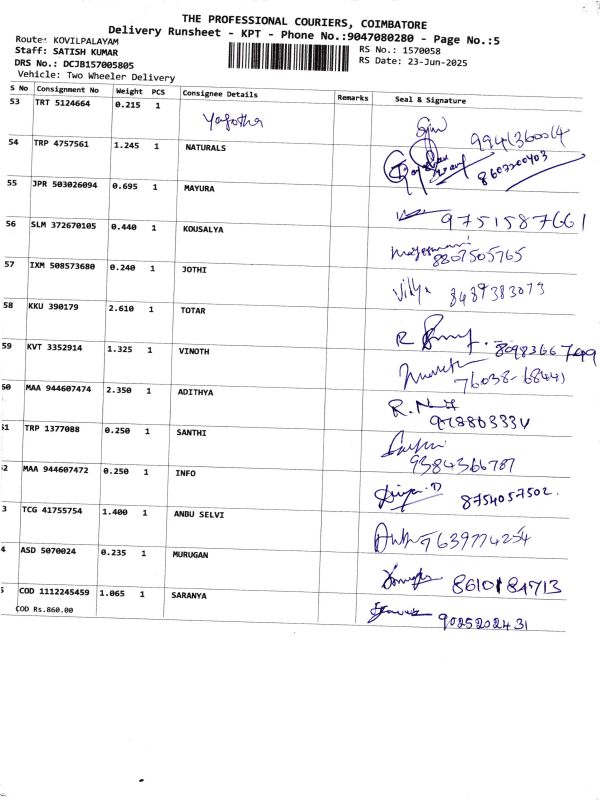 THE PROFESSIONAL COURIERS, COIMBATORE
Delivery Runsheet - KPT - Phone No.:9047080280 - Page No.:5
Route: KOVILPALAYAM
RS No.: 1570058
Staff: SATISH KUMAR
RS Date: 23-Jun-2025
DRS No.: DCJB157005805
Vehicle: Two Wheeler Delivery
S No Consignment No Weight PCS Consignee Details Remarks Seal & Signature
53 TRT 5124664 0.215 1
54 TRP 4757561 1.245 1 NATURALS 8607200403
55 JPR 503026094 0.695 1 MAYURA 9751587661
56 SLM 372670105 0.440 1 KOUSALYA 8807505765
57 IXM 508573680 0.240 1 JOTHI 8489383073
58 KKU 390179 2.610 1 TOTAR 8098366749
59 KVT 3352914 1.325 1 VINOTH 76038-68441
60 MAA 944607474 2.350 1 ADITHYA R.
61 TRP 1377088 0.250 1 SANTHI 9384366787
2 MAA 944607472 0.250 1 INFO 8754057502.
3 TCG 41755754 1.400 1 ANBU SELVI 7639774254
4 ASD 5070024 0.235 1 MURUGAN 8610184713
5 COD 1112245459 1.065 1 SARANYA 9025202431
COD Rs.860.00